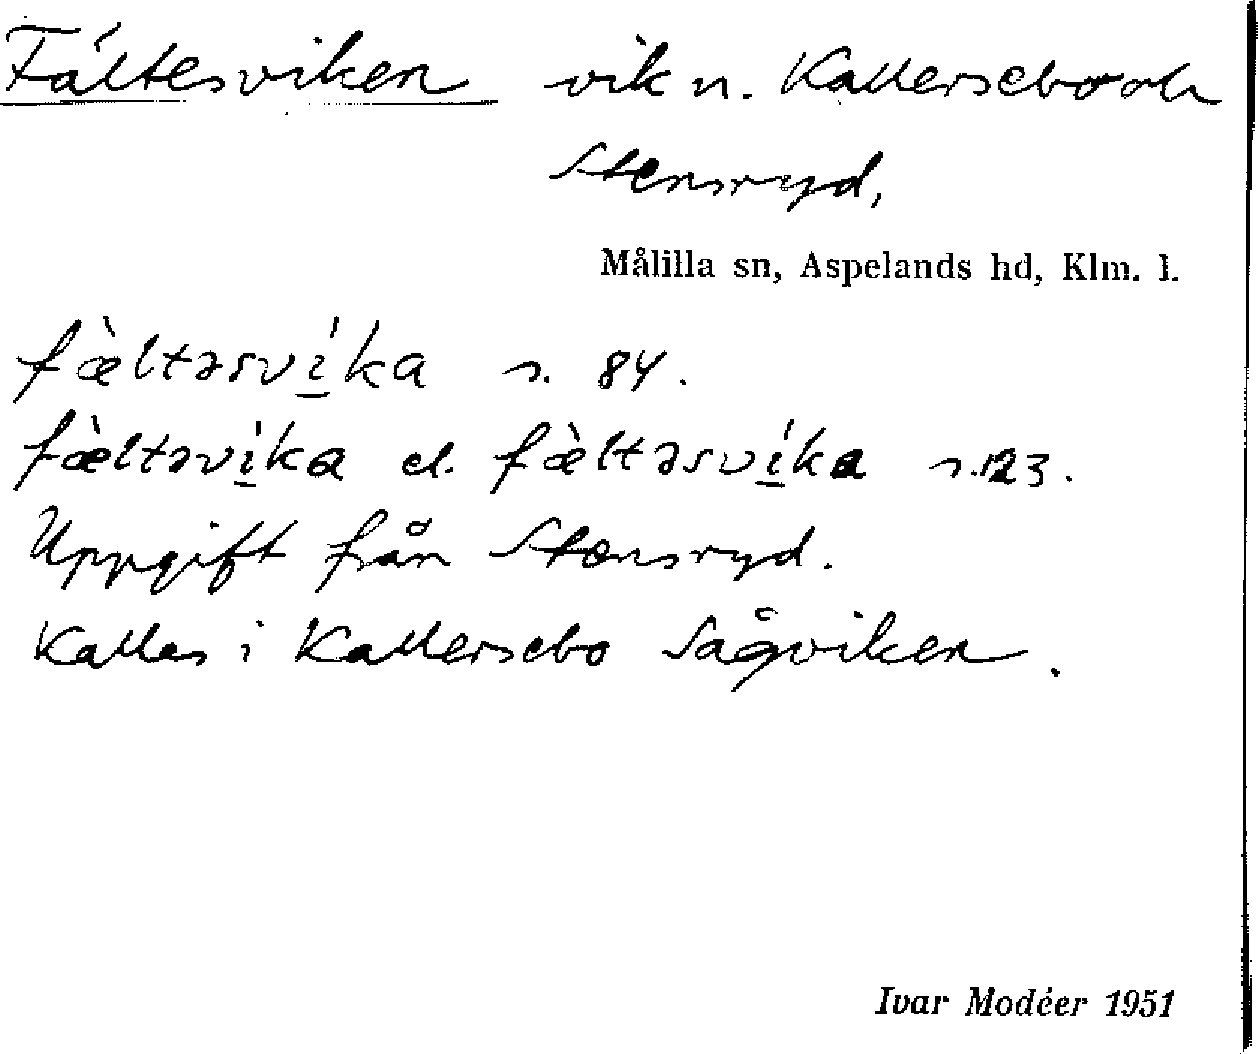 Fältesviken vik n. Kallersebo och
Stensryd,
Målilla sn, Aspelands hd, Klm. l.
fæ̀ltəsví̲ka s. 84.
fæ̀ltəví̲ka el. fæ̀ltəsví̲ka s. 123.
Uppgift från Stensryd.
Kallas i Kallersebo Sågviken.
Ivar Modéer 1951